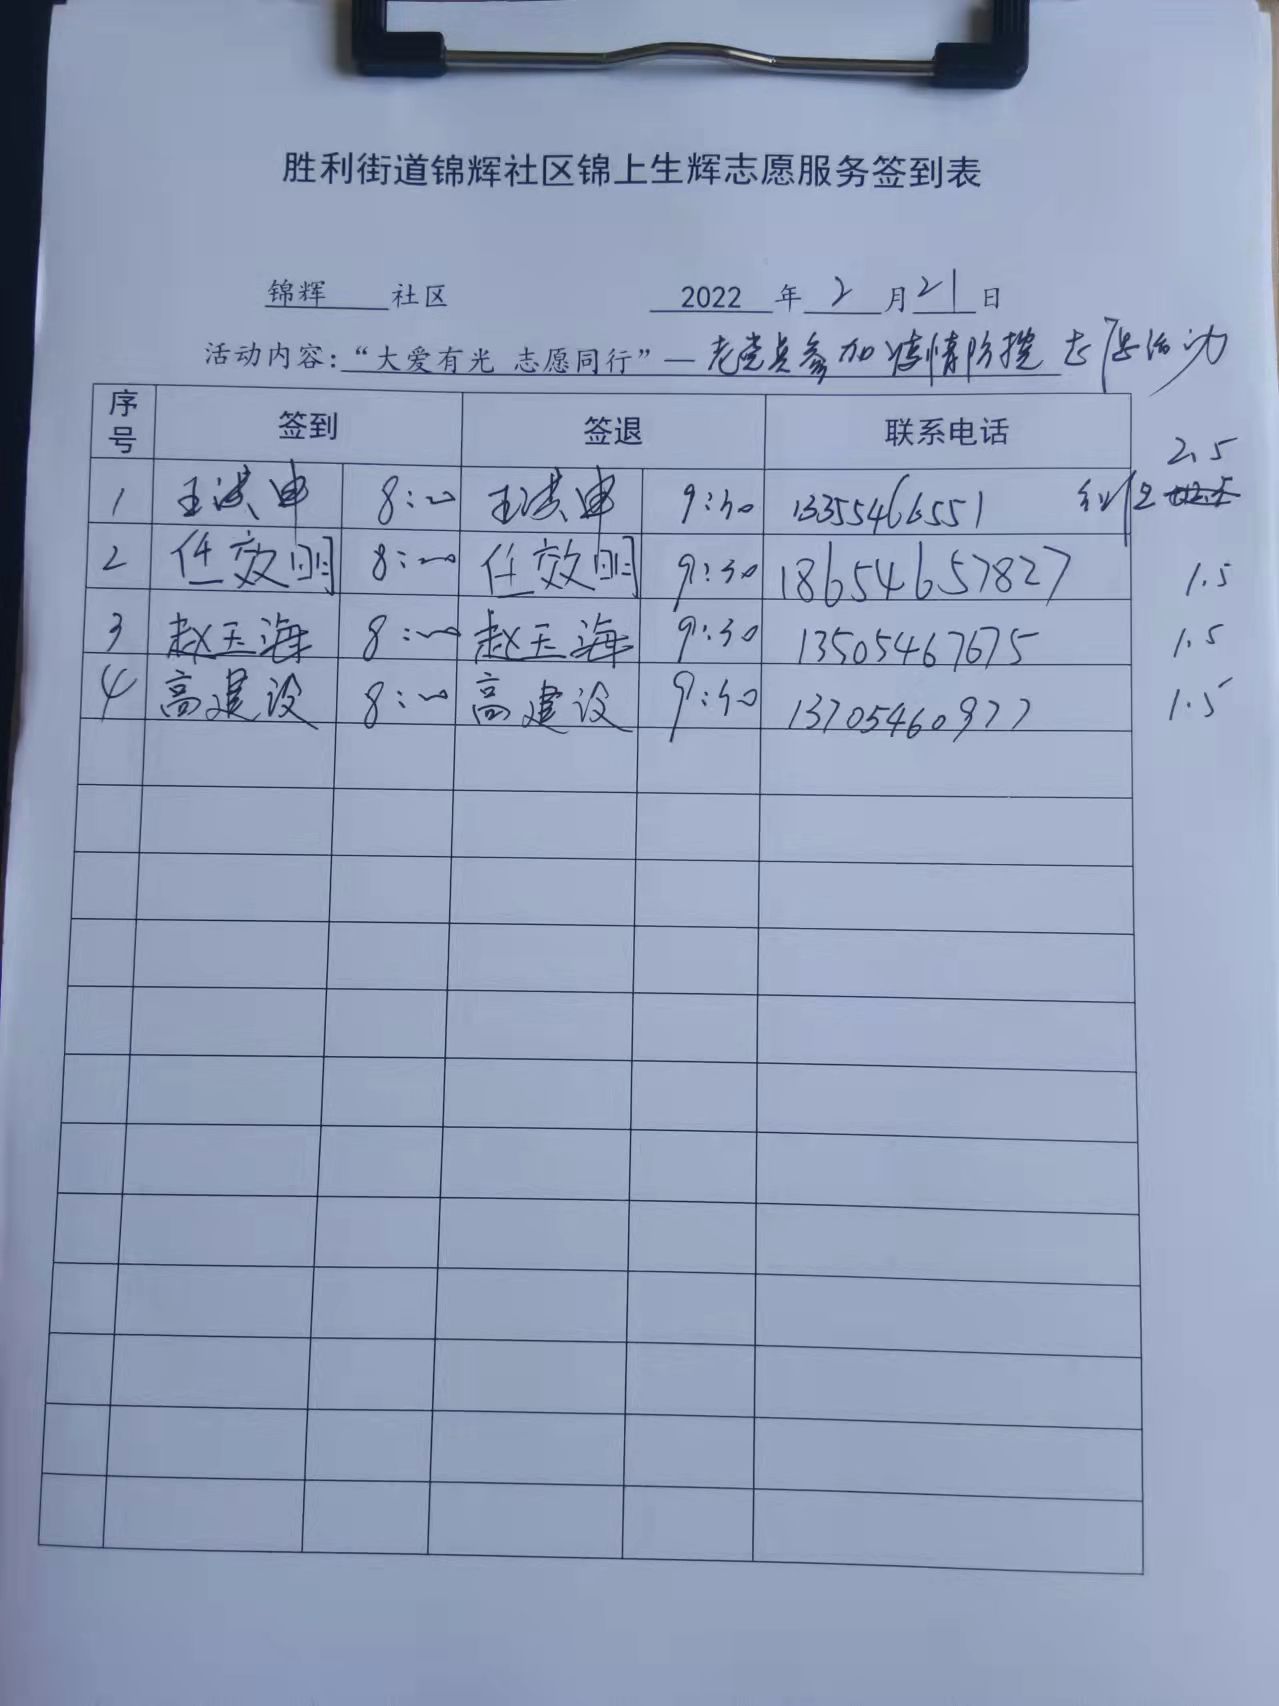 胜利街道锦辉社区锦上生辉志愿服务签到表
锦辉 社区 2022 年 2 月 21 日
活动内容：“大爱有光 志愿同行”—老党员参加疫情防控志愿活动
序号 签到 签退 联系电话
2.5
1 王洪申 8:00 王洪申 9:30 13355466551
2 任效明 8:00 任效明 9:30 18654657827 1.5
3 赵玉海 8:00 赵玉海 9:30 13505467675 1.5
4 高建设 8:00 高建设 9:30 13705460977 1.5